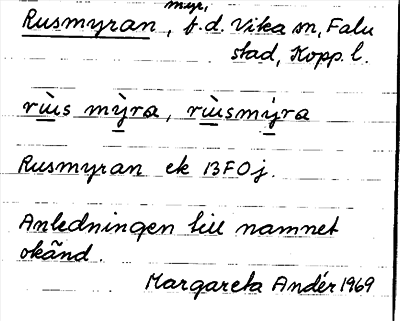 Rusmyran, myr, f.d. Vika sn, Falu
stad, Kopp. l.
rùs mỳra, rùsmýra
Rusmyran ek 13F0j.
Anledningen till namnet
okänd.
Margareta Andér 1969